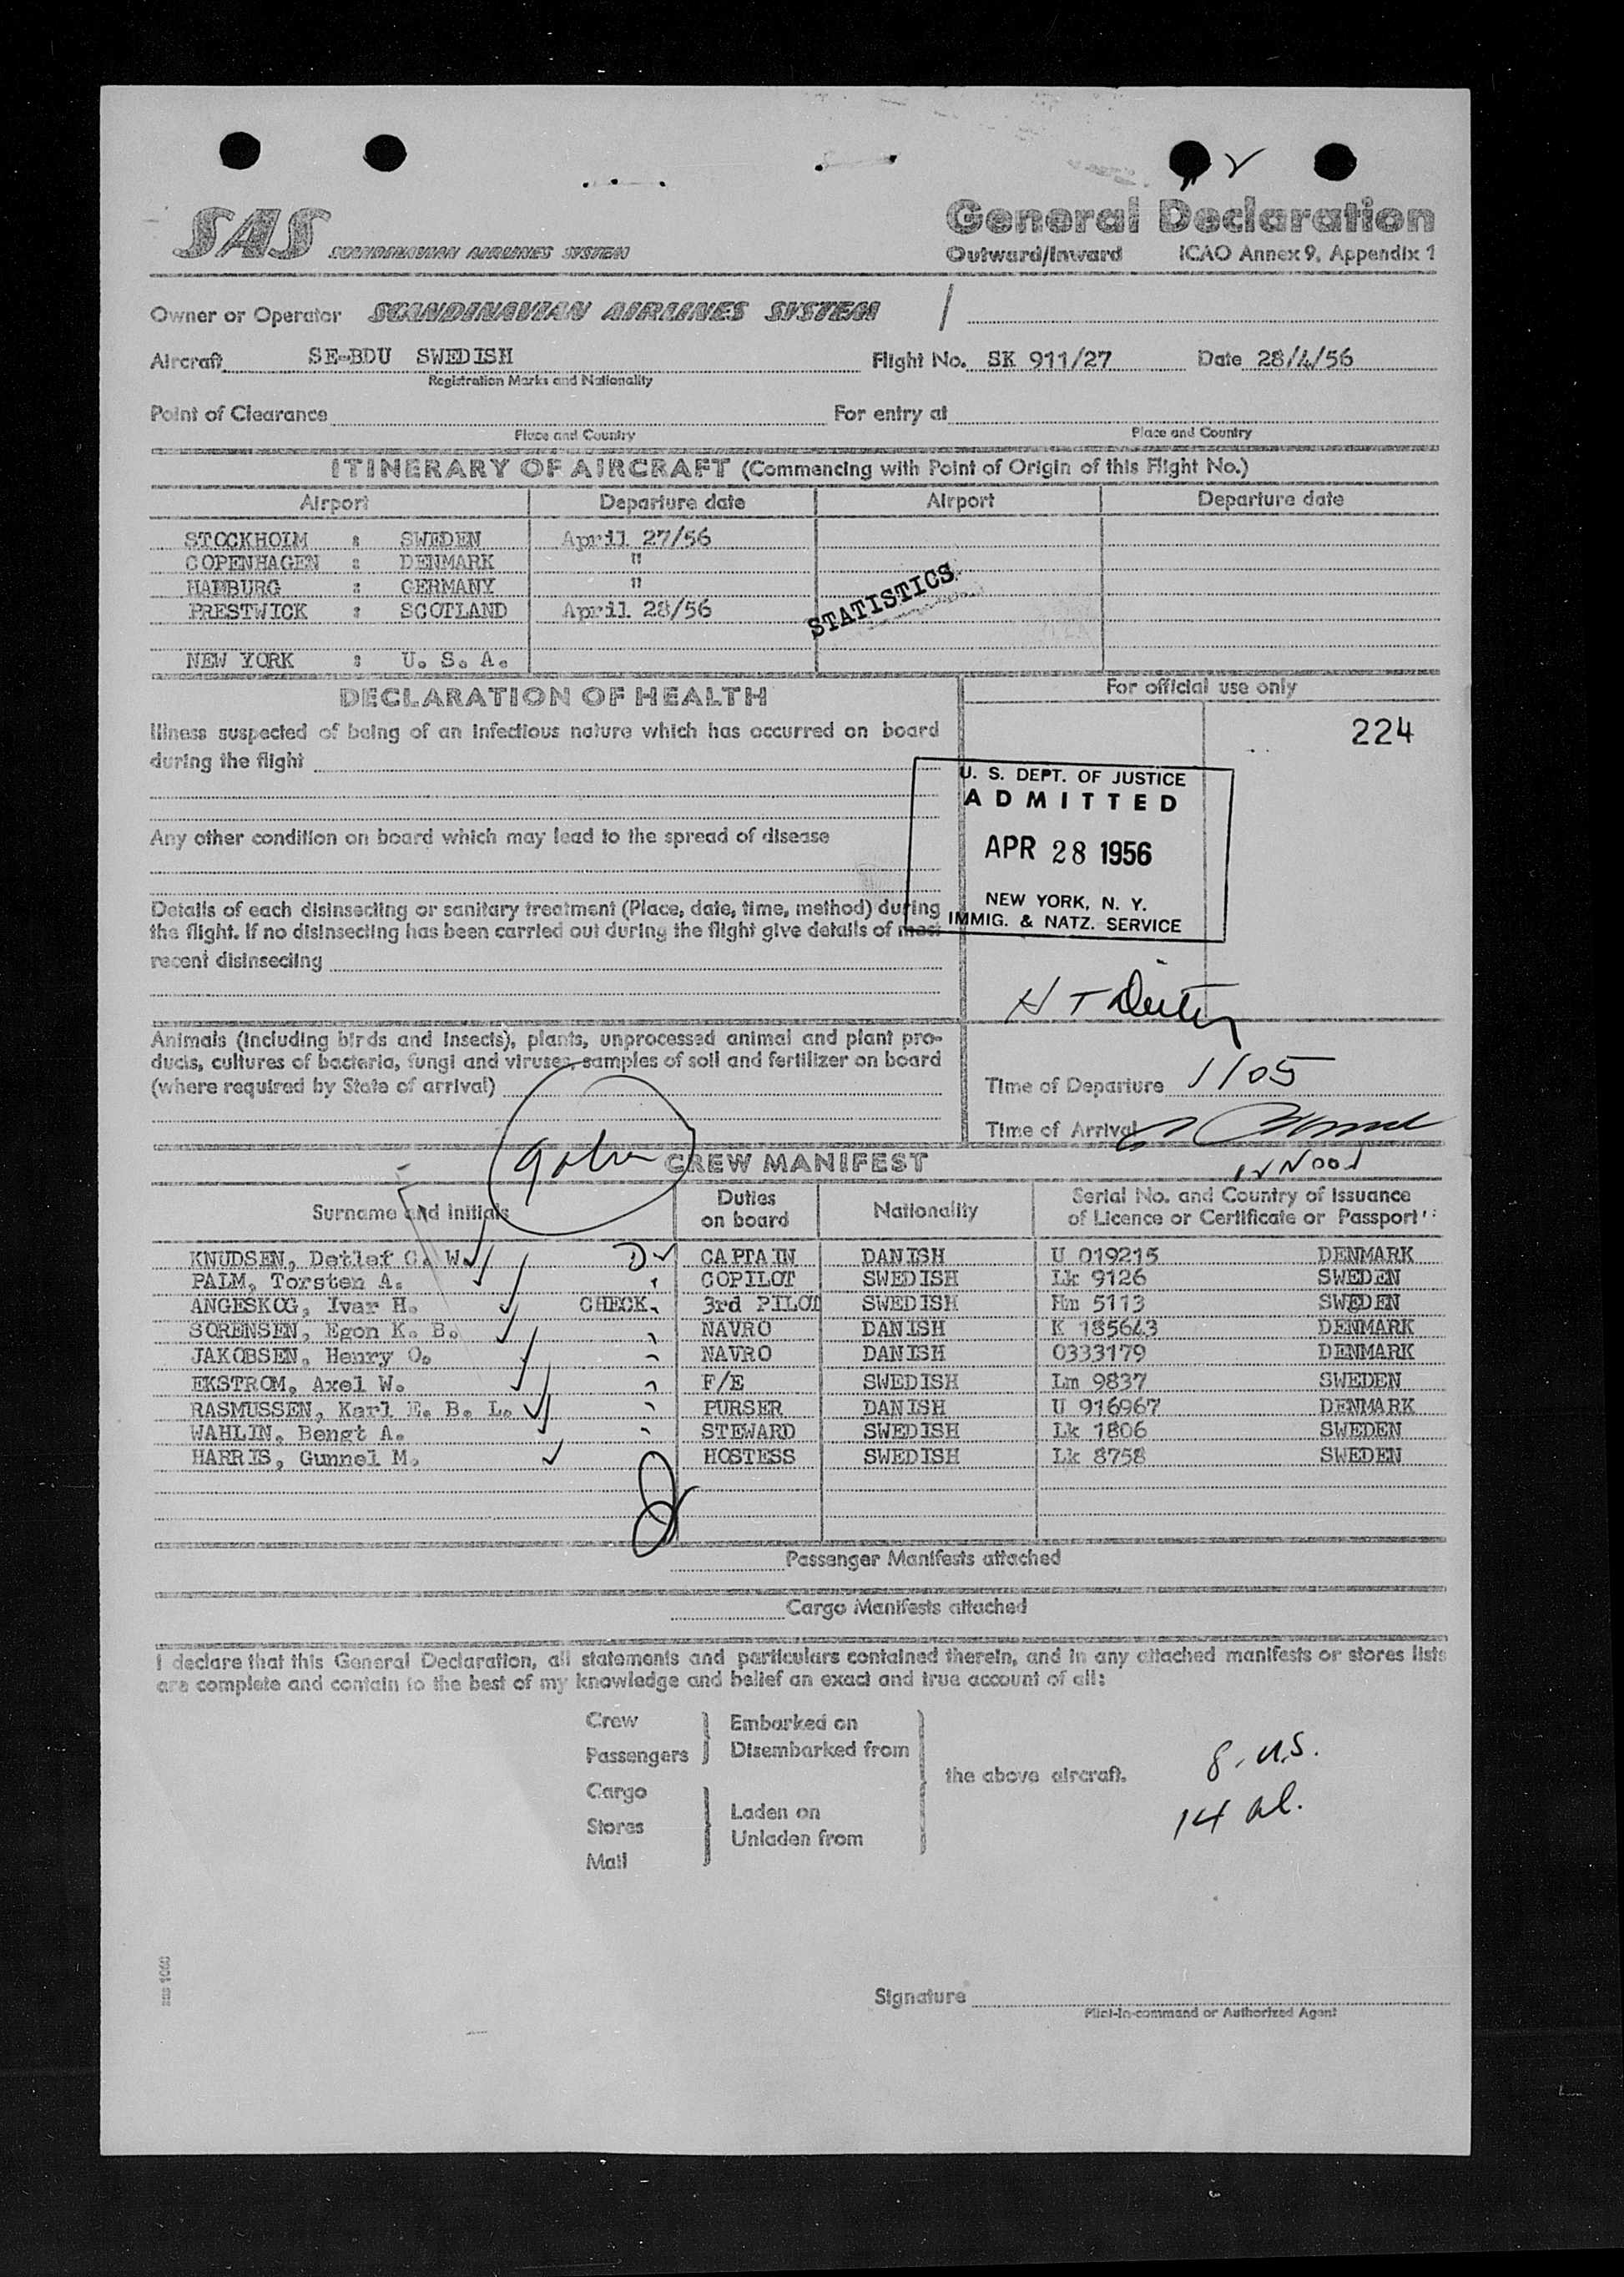 SAS SCANDINAVIAN AIRLINES SYSTEM
General Declaration
Outward/Inward ICAO Annex 9, Appendix 1
Owner or Operator SCANDINAVIAN AIRLINES SYSTEM
Aircraft SE-BDU SWEDISH Flight No. SK 911/27 Date 28/4/56
Registration Marks and Nationality
Point of Clearance For entry at
Place and Country Place and Country
ITINERARY OF AIRCRAFT (Commencing with Point of Origin of this Flight No.)
Airport Departure date Airport Departure date
STOCKHOLM : SWEDEN April 27/56
COPENHAGEN : DENMARK "
HAMBURG : GERMANY "
PRESTWICK : SCOTLAND April 28/56
STATISTICS
NEW YORK : U. S. A.
DECLARATION OF HEALTH
Illness suspected of being of an infectious nature which has occurred on board
during the flight
Any other condition on board which may lead to the spread of disease
Details of each disinsecting or sanitary treatment (Place, date, time, method) during
the flight. If no disinsecting has been carried out during the flight give details of most
recent disinsecting
Animals (including birds and insects), plants, unprocessed animal and plant pro-
ducts, cultures of bacteria, fungi and viruses, samples of soil and fertilizer on board
(where required by State of arrival)
For official use only
224
U. S. DEPT. OF JUSTICE
ADMITTED
APR 28 1956
NEW YORK, N. Y.
IMMIG. & NATZ. SERVICE
Time of Departure 1105
Time of Arrival
CREW MANIFEST
Surname and initials Duties on board Nationality Serial No. and Country of Issuance
of Licence or Certificate or Passport
KNUDSEN, Detlef C. W. CAPTAIN DANISH U 019215 DENMARK
PALM, Torsten A. COPILOT SWEDISH Lk 9126 SWEDEN
ANGESKOG, Ivar H. CHECK 3rd PILOT SWEDISH Hm 5113 SWEDEN
SORENSEN, Egon K. B. NAVRO DANISH K 185643 DENMARK
JAKOBSEN, Henry O. NAVRO DANISH 0333179 DENMARK
EKSTROM, Axel W. F/E SWEDISH Lm 9837 SWEDEN
RASMUSSEN, Karl E. B. L. PURSER DANISH U 916967 DENMARK
WAHLIN, Bengt A. STEWARD SWEDISH Lk 1806 SWEDEN
HARRIS, Gunnel M. HOSTESS SWEDISH Lk 8758 SWEDEN
Passenger Manifests attached
Cargo Manifests attached
I declare that this General Declaration, all statements and particulars contained therein, and in any attached manifests or stores lists
are complete and contain to the best of my knowledge and belief an exact and true account of all:
Crew
Passengers
Cargo
Stores
Mail
Embarked on
Disembarked from
Laden on
Unladen from
the above aircraft.
8. U.S.
14 al.
Signature
Pilot-in-command or Authorized Agent